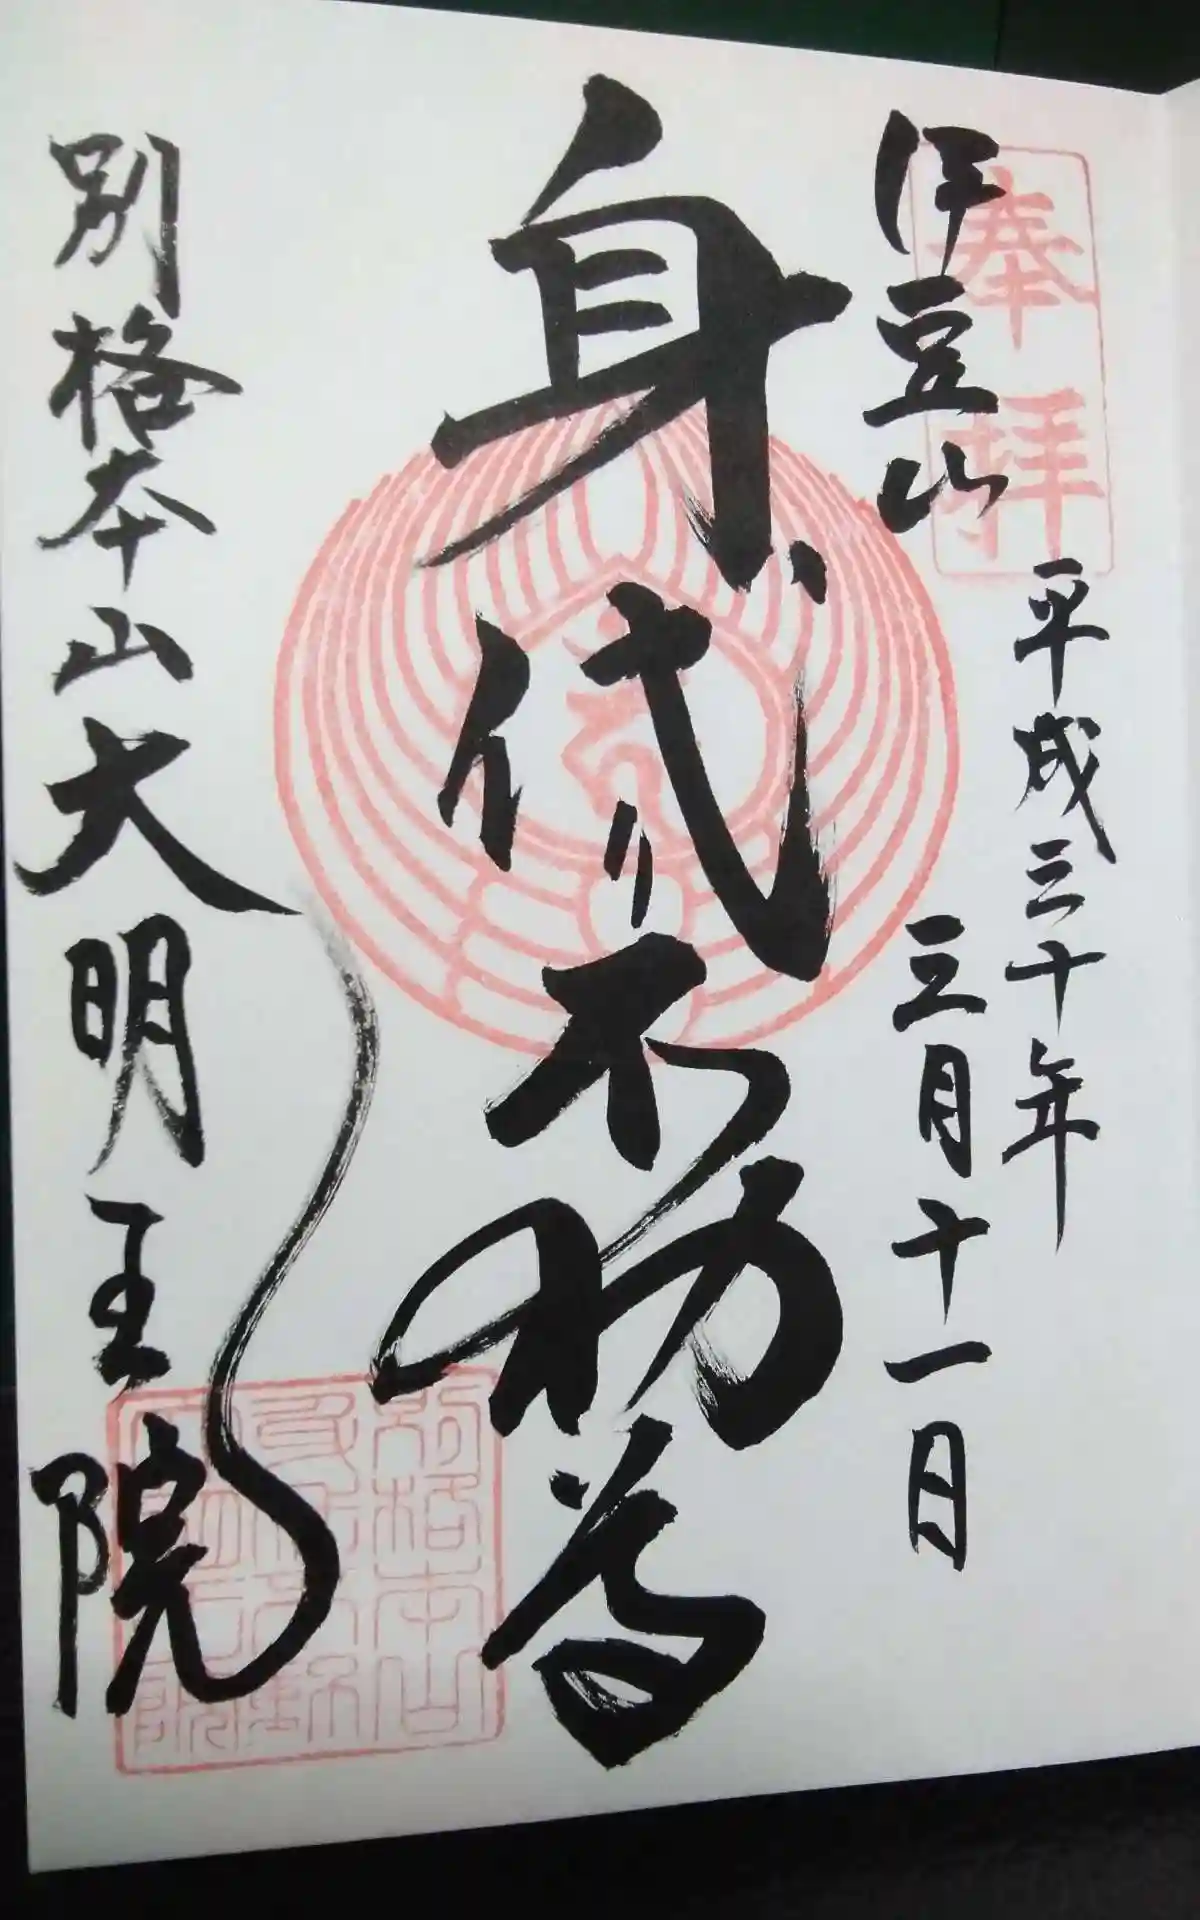 奉拝
伊豆山
平成三十年
三月十一日
身代り不動尊
別格本山大明王院
別格本山